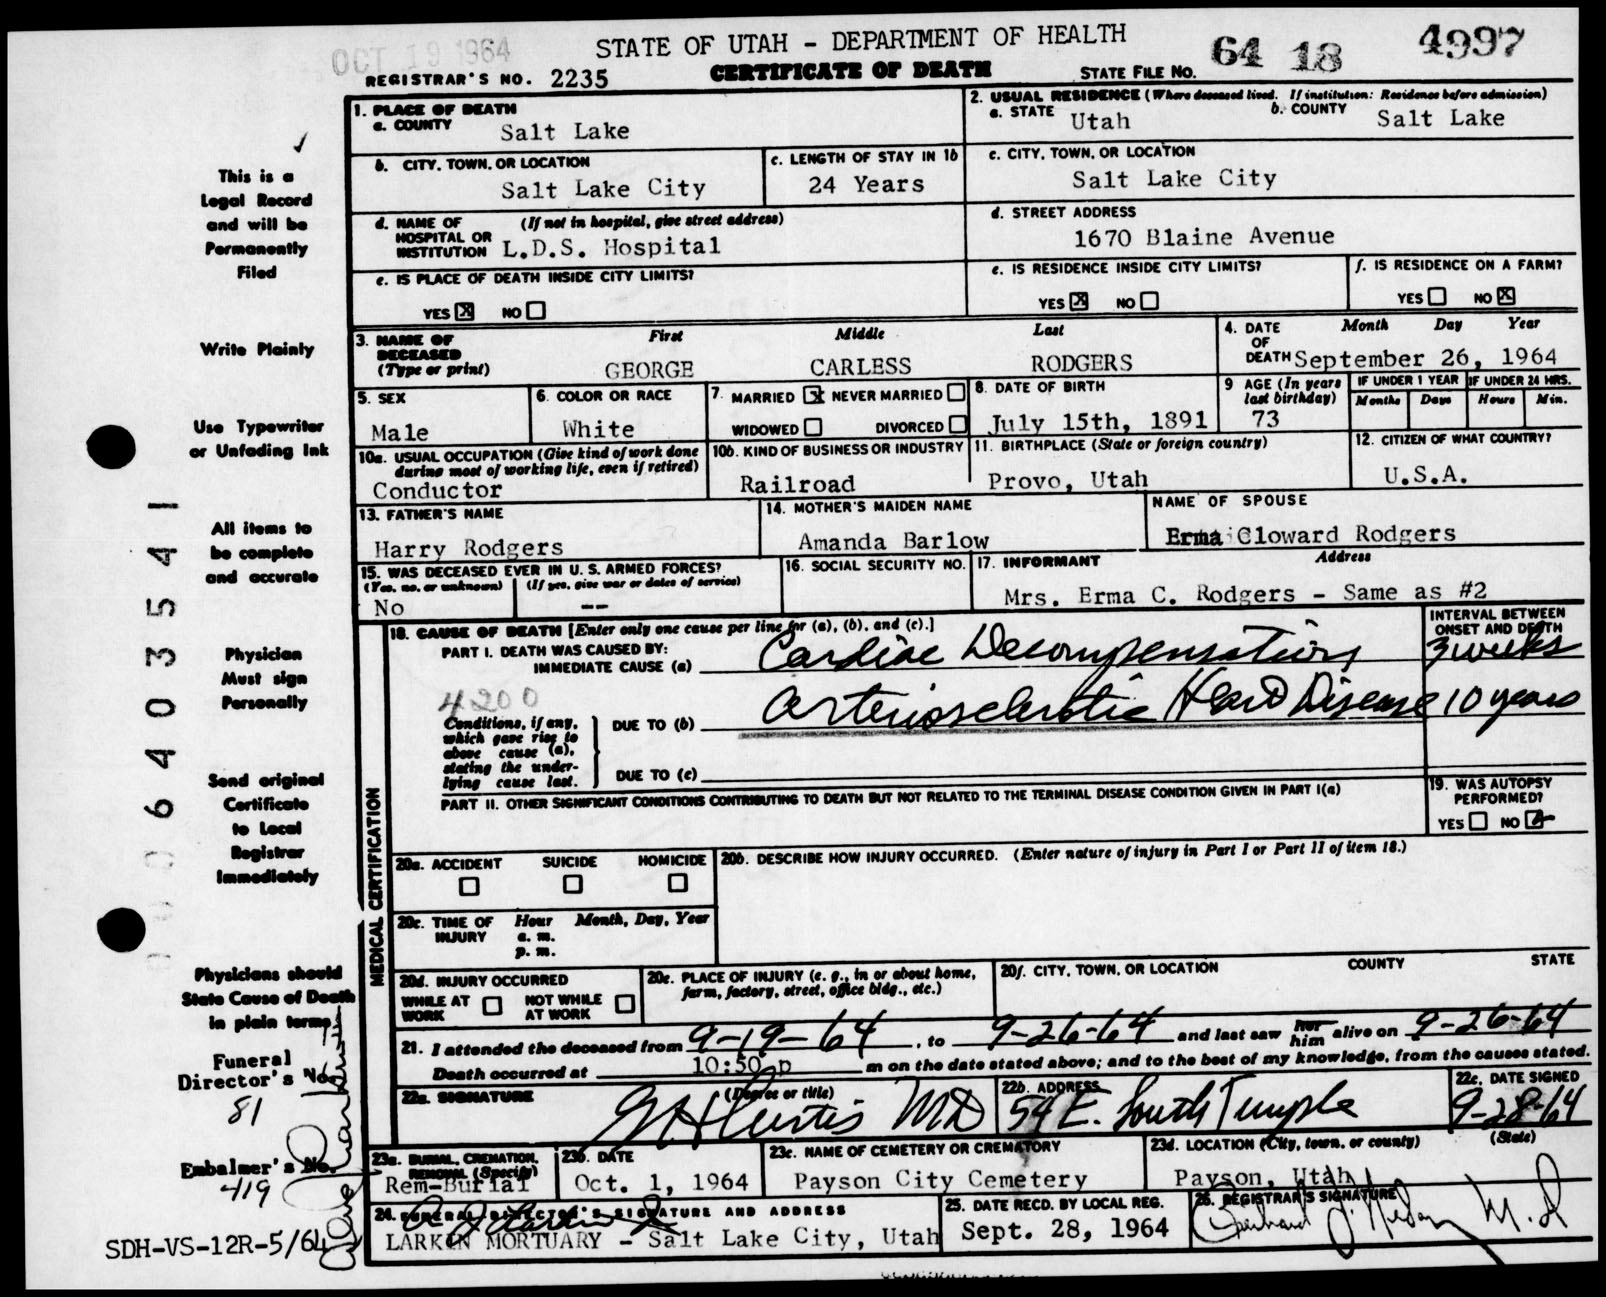 OCT 19 1964
STATE OF UTAH - DEPARTMENT OF HEALTH
REGISTRAR'S NO. 2235
CERTIFICATE OF DEATH
STATE FILE NO. 64 18 4997
1. PLACE OF DEATH
a. COUNTY Salt Lake
2. USUAL RESIDENCE (Where deceased lived. If institution: Residence before admission)
a. STATE Utah b. COUNTY Salt Lake
b. CITY, TOWN, OR LOCATION Salt Lake City
c. LENGTH OF STAY IN 1b 24 Years
c. CITY, TOWN, OR LOCATION Salt Lake City
d. NAME OF HOSPITAL OR INSTITUTION (If not in hospital, give street address) L.D.S. Hospital
d. STREET ADDRESS 1670 Blaine Avenue
e. IS PLACE OF DEATH INSIDE CITY LIMITS?
YES X NO
e. IS RESIDENCE INSIDE CITY LIMITS?
YES X NO
f. IS RESIDENCE ON A FARM?
YES NO X
3. NAME OF DECEASED (Type or print)
First Middle Last
GEORGE CARLESS RODGERS
4. DATE OF DEATH Month Day Year
September 26, 1964
5. SEX Male
6. COLOR OR RACE White
7. MARRIED X NEVER MARRIED
WIDOWED DIVORCED
8. DATE OF BIRTH July 15th, 1891
9 AGE (In years last birthday) 73
IF UNDER 1 YEAR Months Days
IF UNDER 24 HRS. Hours Min.
10a. USUAL OCCUPATION (Give kind of work done during most of working life, even if retired)
Conductor
10b. KIND OF BUSINESS OR INDUSTRY
Railroad
11. BIRTHPLACE (State or foreign country)
Provo, Utah
12. CITIZEN OF WHAT COUNTRY?
U.S.A.
13. FATHER'S NAME
Harry Rodgers
14. MOTHER'S MAIDEN NAME
Amanda Barlow
NAME OF SPOUSE
Erma Cloward Rodgers
15. WAS DECEASED EVER IN U. S. ARMED FORCES?
(Yes, no, or unknown) (If yes, give war or dates of service)
No --
16. SOCIAL SECURITY NO.
17. INFORMANT Address
Mrs. Erma C. Rodgers - Same as #2
18. CAUSE OF DEATH [Enter only one cause per line for (a), (b), and (c).]
INTERVAL BETWEEN ONSET AND DEATH
PART I. DEATH WAS CAUSED BY:
IMMEDIATE CAUSE (a) Cardiac Decompensation 3 weeks
4200
Conditions, if any, which gave rise to above cause (a), stating the underlying cause last.
DUE TO (b) Arteriosclerotic Heart Disease 10 years
DUE TO (c)
PART II. OTHER SIGNIFICANT CONDITIONS CONTRIBUTING TO DEATH BUT NOT RELATED TO THE TERMINAL DISEASE CONDITION GIVEN IN PART I(a)
19. WAS AUTOPSY PERFORMED?
YES NO
MEDICAL CERTIFICATION
20a. ACCIDENT SUICIDE HOMICIDE
20b. DESCRIBE HOW INJURY OCCURRED. (Enter nature of injury in Part I or Part II of item 18.)
20c. TIME OF INJURY Hour Month, Day, Year
a. m.
p. m.
20d. INJURY OCCURRED
WHILE AT WORK NOT WHILE AT WORK
20e. PLACE OF INJURY (e. g., in or about home, farm, factory, street, office bldg., etc.)
20f. CITY, TOWN, OR LOCATION COUNTY STATE
21. I attended the deceased from 9-19-64, to 9-26-64 and last saw her him alive on 9-26-64
Death occurred at 10:50 p m on the date stated above; and to the best of my knowledge, from the causes stated.
22a. SIGNATURE (Degree or title)
G H Curtis MD
22b. ADDRESS
54 E. South Temple
22c. DATE SIGNED
9-28-64
23a. BURIAL, CREMATION, REMOVAL (Specify)
Rem-Burial
23b. DATE
Oct. 1, 1964
23c. NAME OF CEMETERY OR CREMATORY
Payson City Cemetery
23d. LOCATION (City, town, or county) (State)
Payson, Utah
24. FUNERAL DIRECTOR'S SIGNATURE AND ADDRESS
LARKIN MORTUARY - Salt Lake City, Utah
25. DATE RECD. BY LOCAL REG.
Sept. 28, 1964
26. REGISTRAR'S SIGNATURE
M.D
This is a
Legal Record
and will be
Permanently
Filed
Write Plainly
Use Typewriter
or Unfading Ink
All items to
be complete
and accurate
Physician
Must sign
Personally
Send original
Certificate
to Local
Registrar
Immediately
Physicians should
State Cause of Death
in plain terms
Funeral
Director's No.
81
Embalmer's No.
419
SDH-VS-12R-5/64
6403541